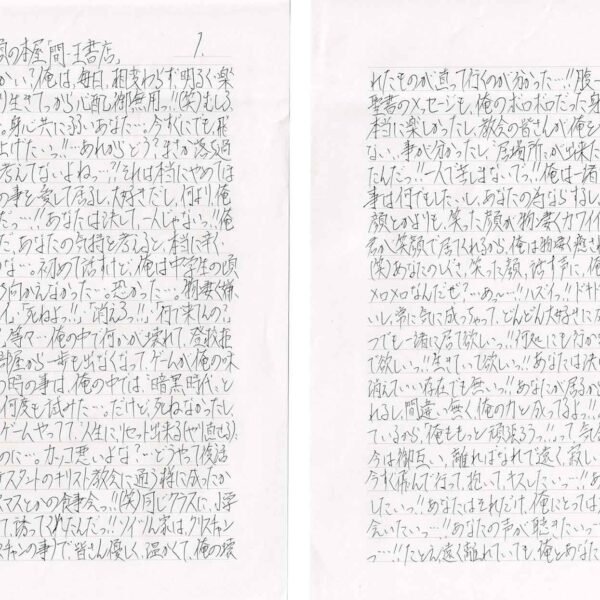 の本屋「間・王書店」
1.
かい?俺は、毎日、相変わらず、明るく、楽
り生きてっから心配御無用っ!!(笑)むしろ、
。身心共に弱いあなた…。今すぐにでも、飛
上げたいっ!!…あれからどう?まさか落
考えてないよねっ…?それは本当にやめては
の事を愛して居るし、大好きだし、何より、俺
だっ…!!あなたは決して、一人じゃないっ!!俺
だ、あなたの気持を考えると、本当に辛く
かな…。初めて話すけど、俺は中学生の頃
向かんなかった…。恐かった…。物凄く嫌
イ、「死ねよっ!!」、「消えろっ!!」、「何て来んの?」
、等々…俺の中で何かが壊れて、登校拒
部屋から一歩も出なくなって、ゲームが俺の味
の時の事は、俺の中では、"暗黒時代"と
何度も試みた…。だけど、死ねなかったし、
ゲームやってて、「人生にリセット出来る(やり直せる)
のに…。カッコ悪いよな?…どうやって復活
スタントのキリスト教会に通う様に成ったか
スマスとかの食事会っ!!(笑)同じクラスに、小学
て、誘ってくれたんだっ!!ソイツん家は、クリスチャン
スチャンの事)で皆さん優しく、温かくて、俺の壊
れたものが直って行くのが分かった…!!
聖書のメッセージも、俺のボロボロだった身
本当に楽しかったし、教会の皆さんが俺を
ない、事が分かったし、「居場所」が出来た
たんだっ!!一人で苦しまないでっ!!俺は一緒
事は何でもしたいし、あなたの為ならするし、
顔とかよりも、笑った顔が物凄くカワイイ
君が笑顔で居てくれるから、俺は物凄く癒され
(笑)あなたのしぐさ、笑った顔、話す声に、俺
メロメロなんだぜ?…あ〜…!!ハズイっ!!ドキド
いし、常に気に成っちゃって、どんどん大好きに
つでも一緒に居て欲しいっ!!何処にも行か
て欲しいっ!!生きていて欲しいっ!!あなたは決
消えていい存在でも無いっ!!あなたが居るか
れるし、間違い無く、俺の力と成ってるよっ!!
ているから「俺ももっと頑張ろうっ!!」って、気
今は御互い、離ればなれで遠く、寂しい
今すぐ飛んで行って、抱いて、キスしたいっ…!!
したいっ!!あなたはそれだけ、俺にとっては
会いたいっ…!!あなたの声が聴きたいっ…
っ…!!たとえ遠く離れていても、俺とあなた